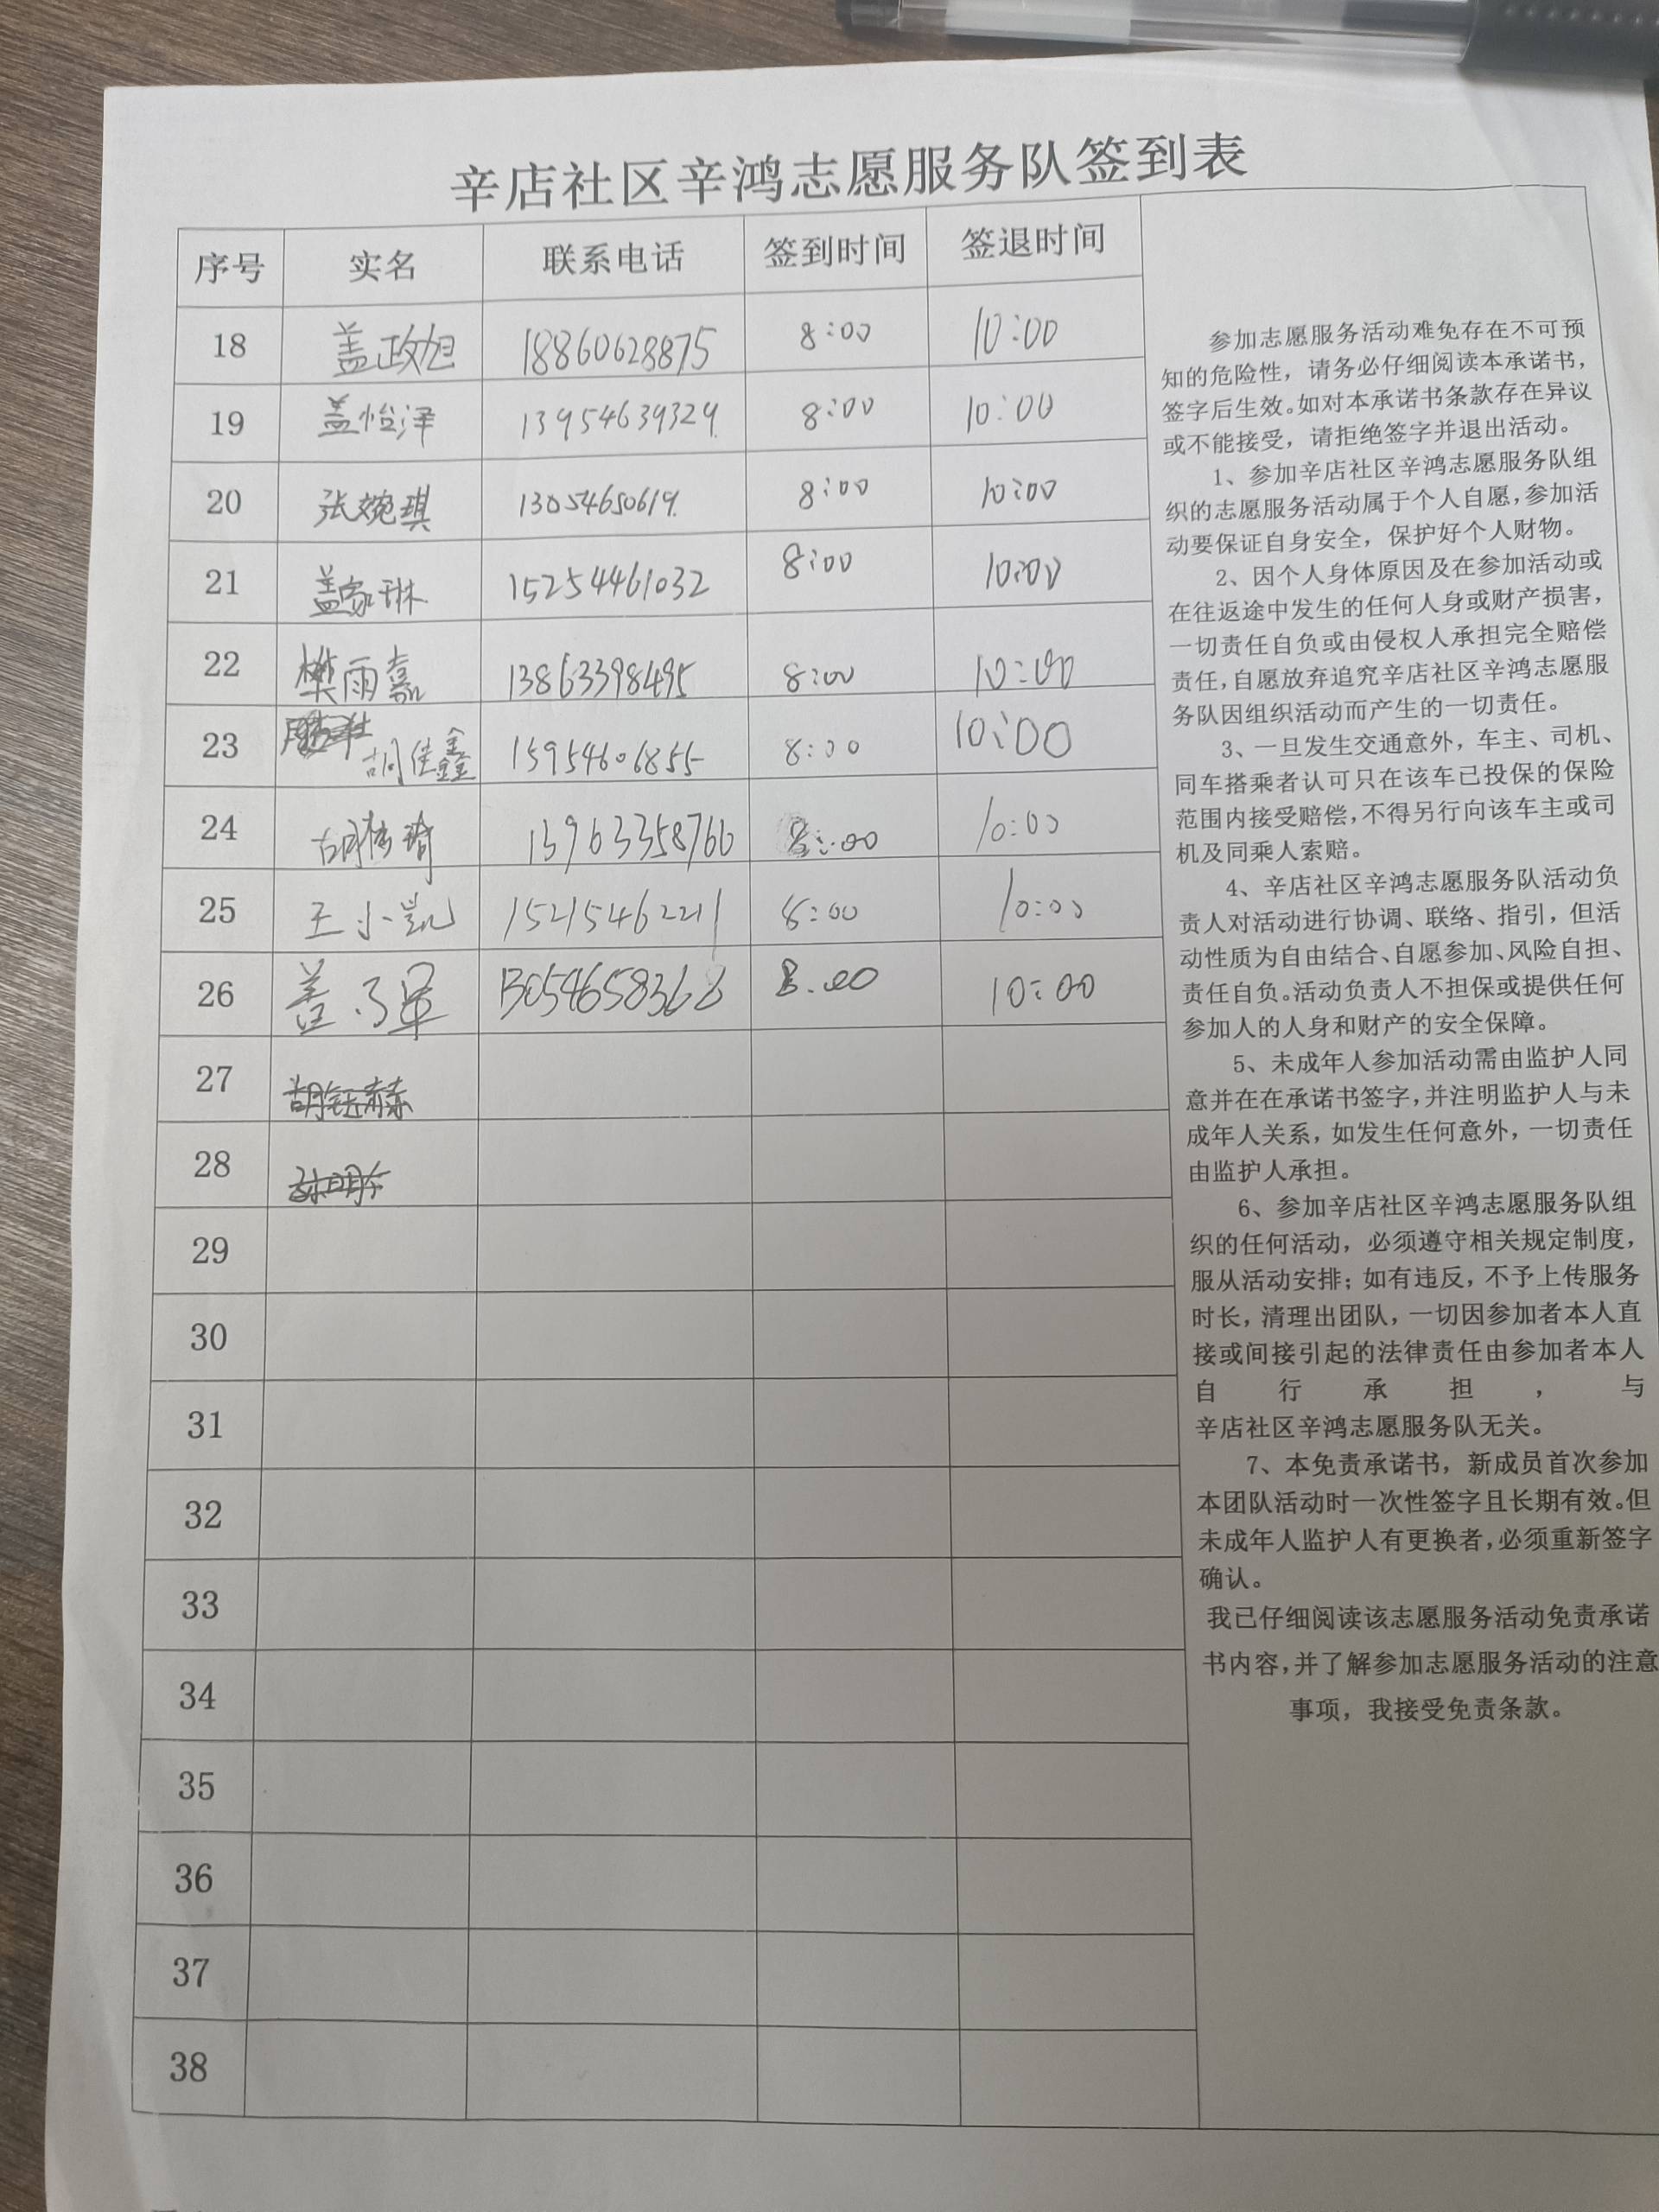 辛店社区辛鸿志愿服务队签到表
序号 实名 联系电话 签到时间 签退时间
18 盖政旭 18860628875 8:00 10:00
19 盖怡泽 13954639329 8:00 10:00
20 张婉琪 13054650619 8:00 10:00
21 盖家琳 15254461032 8:00 10:00
22 樊雨嘉 13863398495 8:00 10:00
23 胡佳鑫 15954606855 8:00 10:00
24 13963358766 8:00 10:00
25 王小凯 15215462211 8:00 10:00
26 13054658368 8:00 10:00
27
28
29
30
31
32
33
34
35
36
37
38
参加志愿服务活动难免存在不可预
知的危险性，请务必仔细阅读本承诺书，
签字后生效。如对本承诺书条款存在异议
或不能接受，请拒绝签字并退出活动。
1、参加辛店社区辛鸿志愿服务队组
织的志愿服务活动属于个人自愿，参加活
动要保证自身安全，保护好个人财物。
2、因个人身体原因及在参加活动或
在往返途中发生的任何人身或财产损害，
一切责任自负或由侵权人承担完全赔偿
责任，自愿放弃追究辛店社区辛鸿志愿服
务队因组织活动而产生的一切责任。
3、一旦发生交通意外，车主、司机、
同车搭乘者认可只在该车已投保的保险
范围内接受赔偿，不得另行向该车主或司
机及同乘人索赔。
4、辛店社区辛鸿志愿服务队活动负
责人对活动进行协调、联络、指引，但活
动性质为自由结合、自愿参加、风险自担、
责任自负。活动负责人不担保或提供任何
参加人的人身和财产的安全保障。
5、未成年人参加活动需由监护人同
意并在在承诺书签字，并注明监护人与未
成年人关系，如发生任何意外，一切责任
由监护人承担。
6、参加辛店社区辛鸿志愿服务队组
织的任何活动，必须遵守相关规定制度，
服从活动安排；如有违反，不予上传服务
时长，清理出团队，一切因参加者本人直
接或间接引起的法律责任由参加者本人
自行承担，与
辛店社区辛鸿志愿服务队无关。
7、本免责承诺书，新成员首次参加
本团队活动时一次性签字且长期有效。但
未成年人监护人有更换者，必须重新签字
确认。
我已仔细阅读该志愿服务活动免责承诺
书内容，并了解参加志愿服务活动的注意
事项，我接受免责条款。